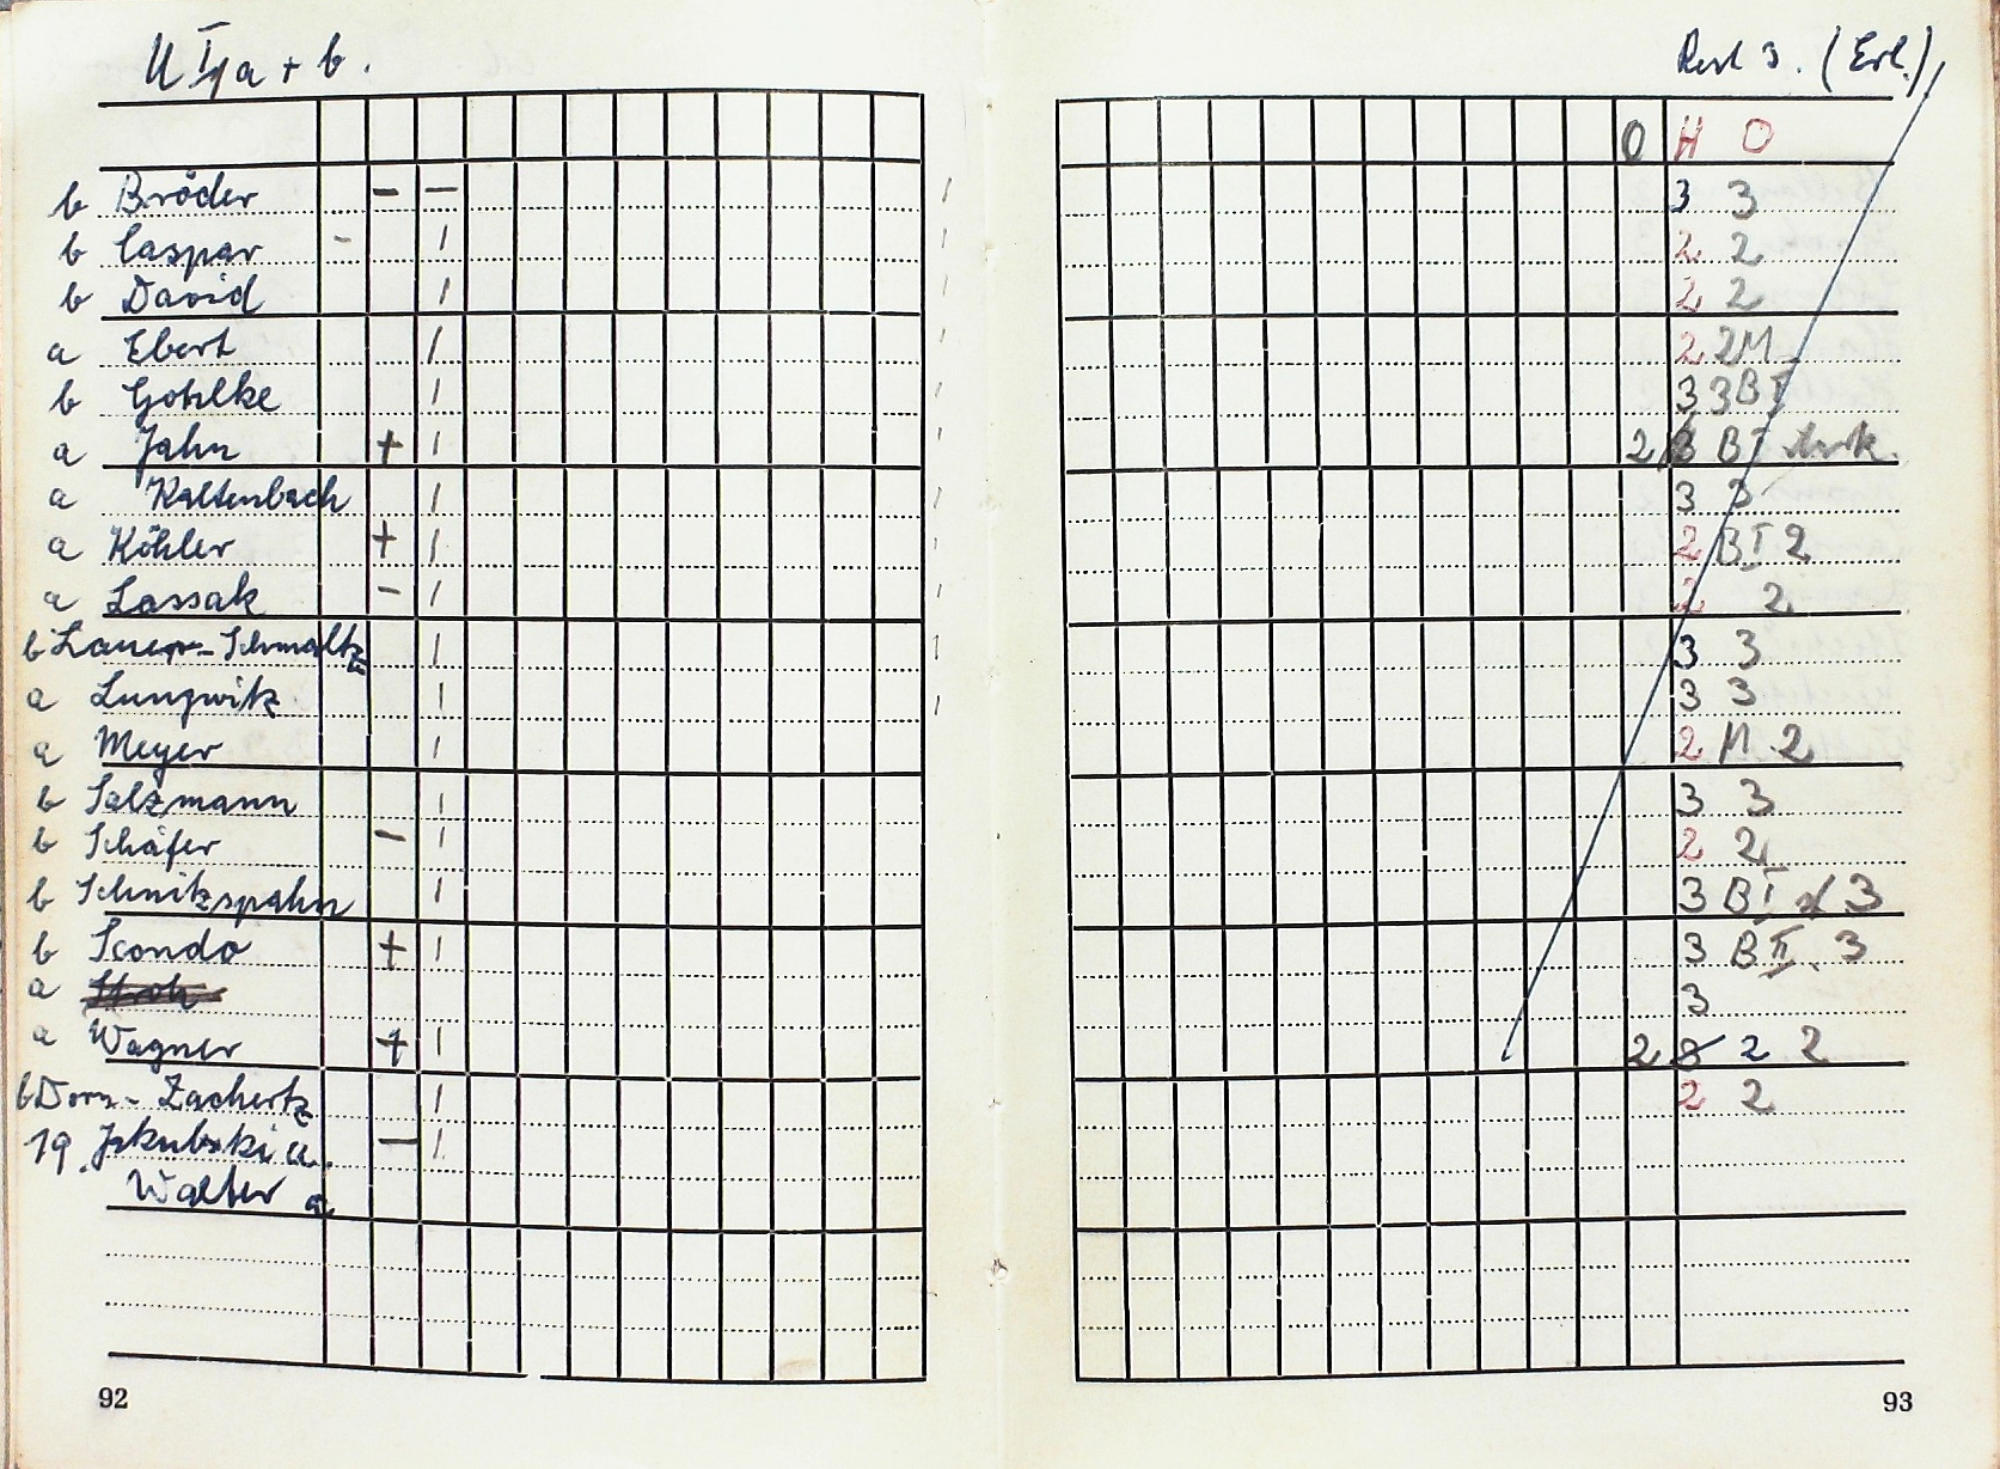 U I a + b.
b Bröder – –
b Caspar - /
b David /
a Ebert /
b Gohlke /
a Jahn + /
a Kaltenbach /
a Köhler + /
a Lassak – /
b Lauer-Schmaltz /
a Lungwitz /
a Meyer /
b Salzmann /
b Schäfer – /
b Schnitzspahn /
b Scondo + /
a Stroh
a Wagner + /
b Dorn-Zachertz /
19. Jakubski a. – /
Walter a
92
Rest 3. (Erl.)
O H O
3 3
2 2
2 2
2 2M
3 3 B I
2 3 B I
3 3
2 B I 2
2 2
3 3
3 3
2 M 2
3 3
2 2
3 B I 3
3 B II. 3
3
2 3 2 2
2 2
93